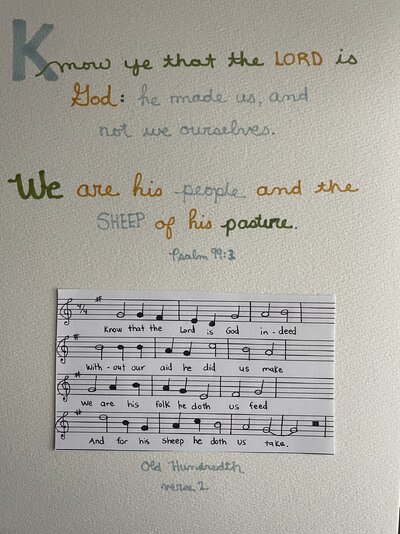 Know ye that the LORD is
God: he made us, and
not we ourselves.
We are his people and the
SHEEP of his pasture.
Psalm 99:3
4/4
Know that the Lord is God in-deed
With-out our aid he did us make
We are his folk he doth us feed
And for his sheep he doth us take.
Old Hundredth
verse 2